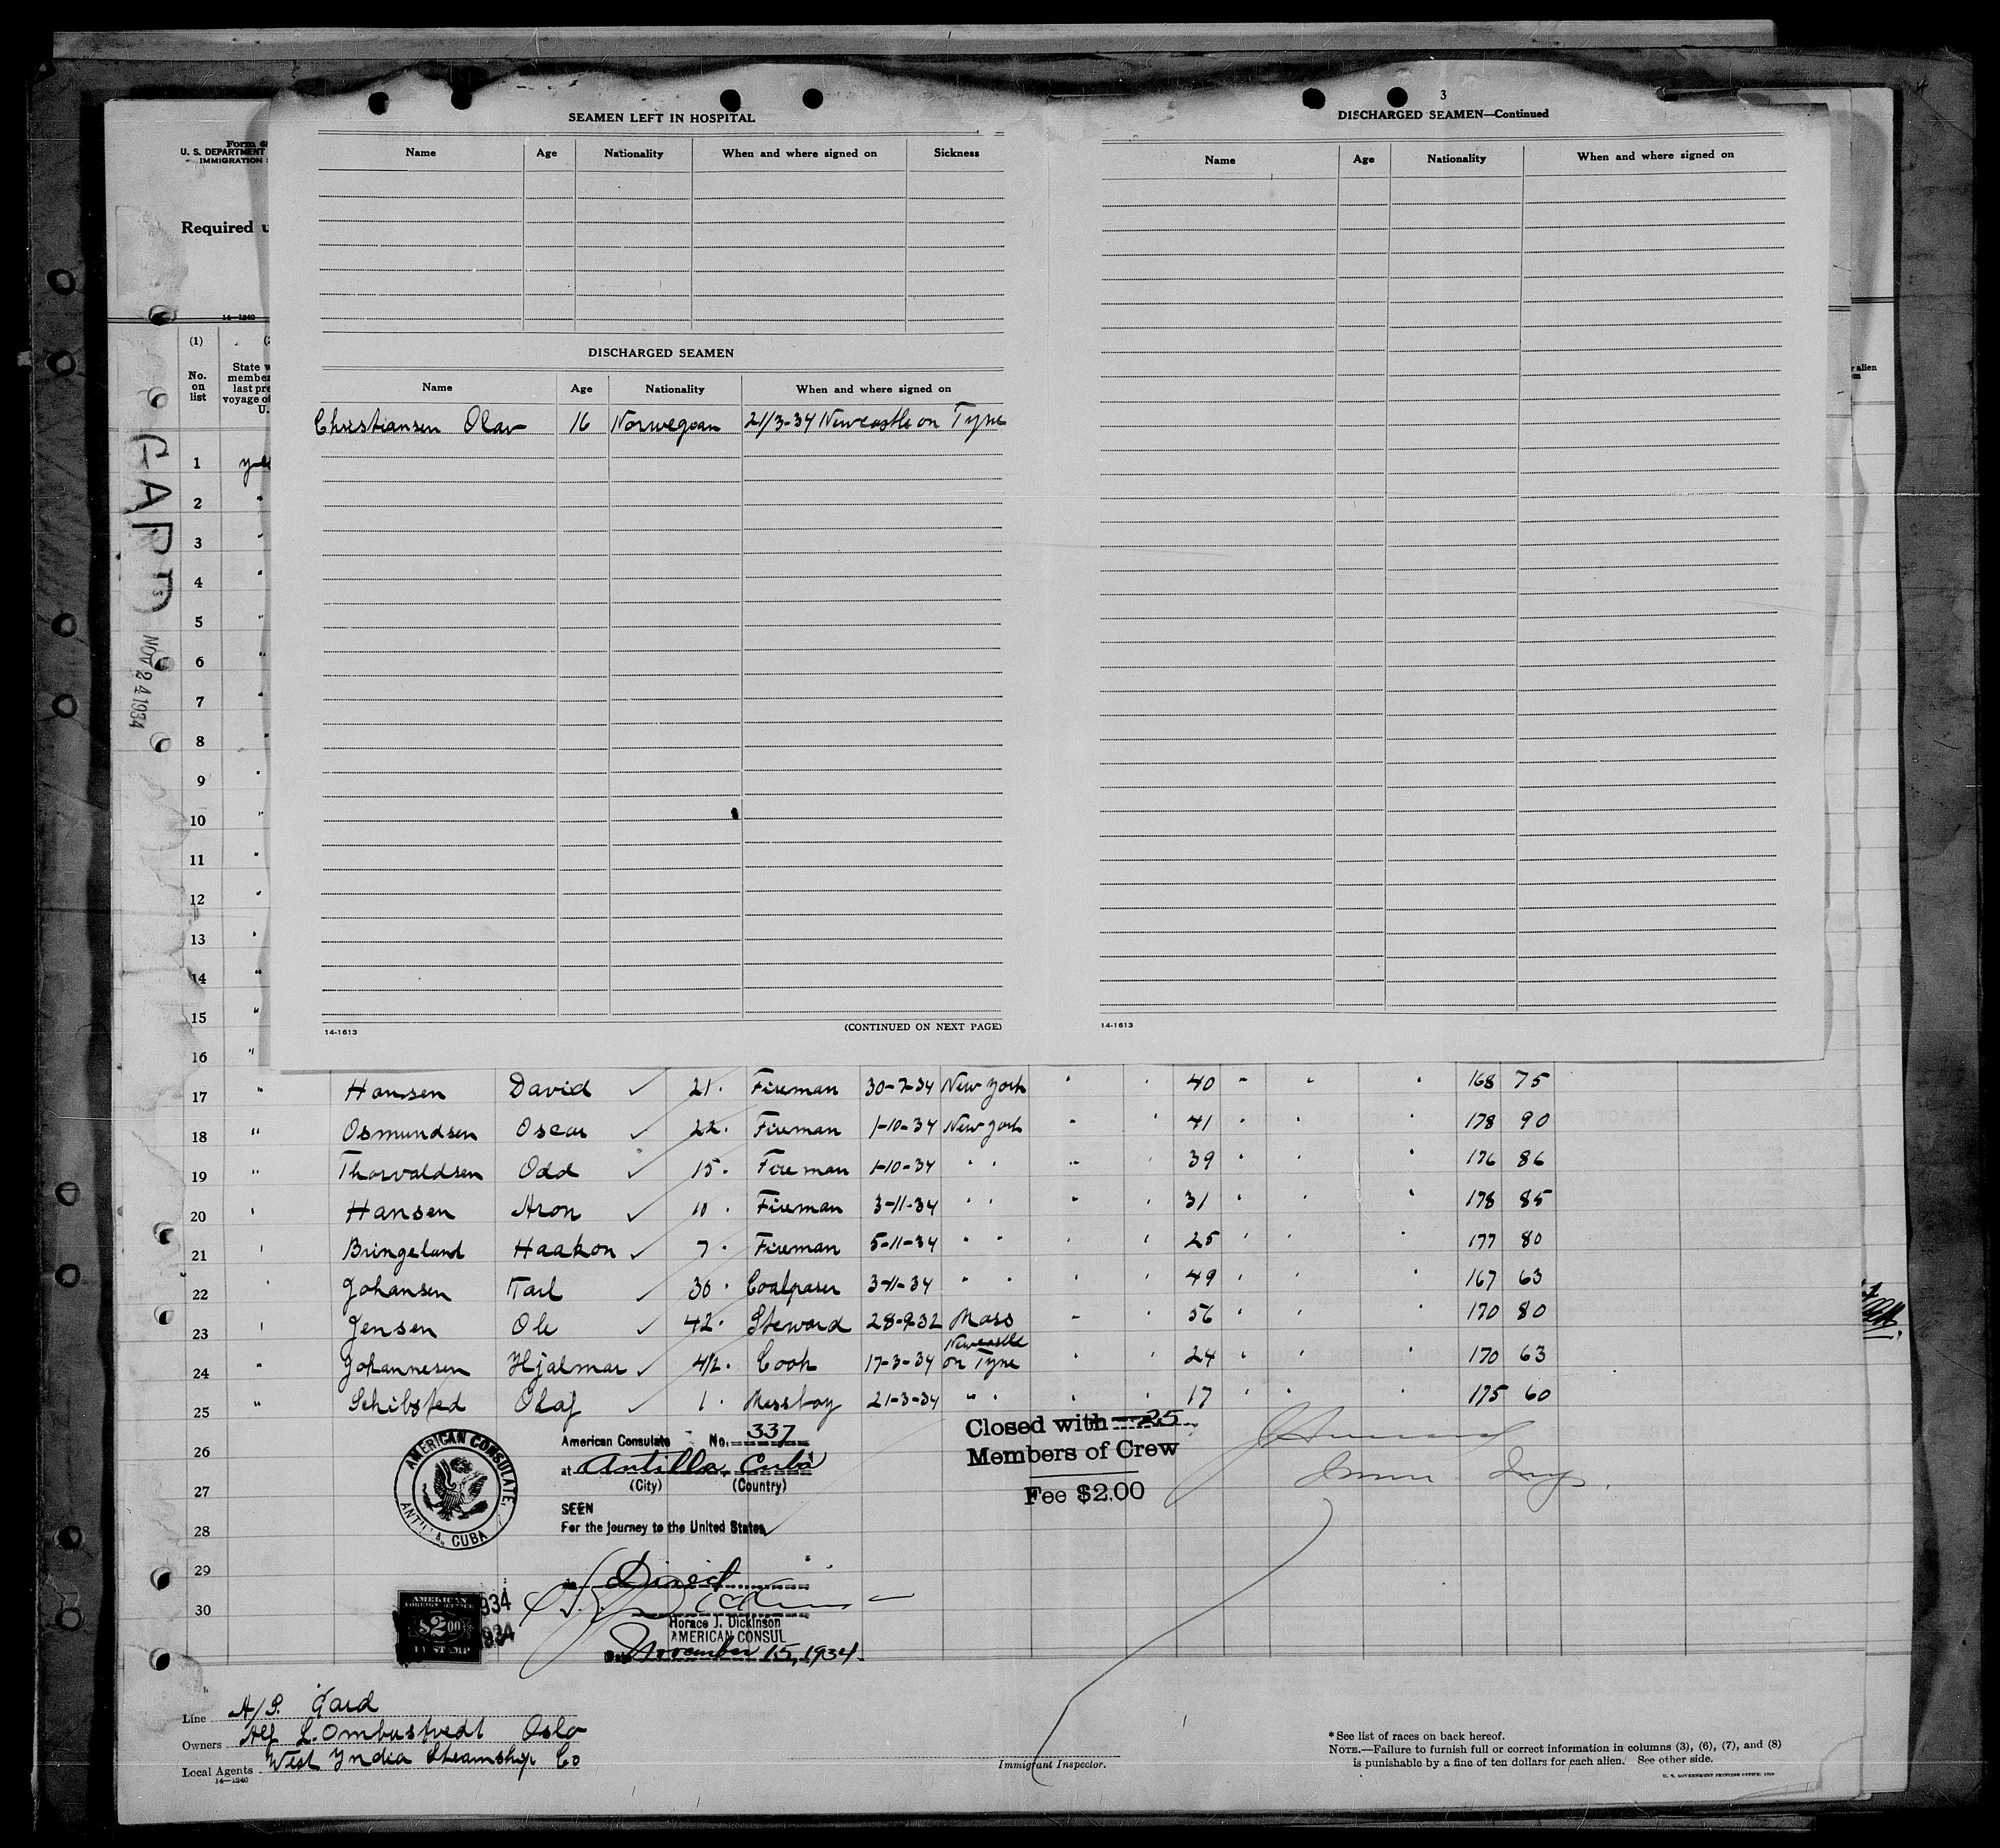 SEAMEN LEFT IN HOSPITAL
Name Age Nationality When and where signed on Sickness
DISCHARGED SEAMEN
Name Age Nationality When and where signed on
Christiansen Olav 16 Norwegian 21/3-34 Newcastle on Tyne
14-1613 (CONTINUED ON NEXT PAGE)
3
DISCHARGED SEAMEN—Continued
Name Age Nationality When and where signed on
14-1613
U. S. DEPARTMENT
IMMIGRATION
Required
14—1240
(1)
No. on list
State
member
last pre
voyage of
U.
r alien
GARD
NOV 24 1934
1
2 "
3 "
4 "
5 "
6 "
7 "
8 "
9 "
10 "
11 "
12 "
13 "
14 "
15 "
16 "
17 " Hansen David ✓ 21 Fireman 30-7-34 New York " " 40 " " " 168 75
18 " Osmundsen Oscar ✓ 22 Fireman 1-10-34 New York " " 41 " " " 178 90
19 " Thorvaldsen Odd ✓ 15 Fireman 1-10-34 " " " " 39 " " " 176 86
20 " Hansen Aron ✓ 10 Fireman 3-11-34 " " " " 31 " " " 178 85
21 " Bringeland Haakon ✓ 7 Fireman 5-11-34 " " " " 25 " " " 177 80
22 " Johansen Karl ✓ 30 Coalpaser 3-11-34 " " " " 49 " " " 167 63
23 " Jensen Ole ✓ 42 Steward 28-9-32 Moss " " 56 " " " 170 80
24 " Johannesen Hjalmar ✓ 4½ Cook 17-3-34 Newcastle on Tyne " " 24 " " " 170 63
25 " Schibsted Olaf ✓ 1 Messboy 21-3-34 " " " " 17 " " " 175 60
26
27
28
29
30
AMERICAN CONSULATE,
ANTILLA, CUBA
American Consulate No. 337
at Antilla, Cuba
(City) (Country)
SEEN
For the journey to the United States
Direct
Horace J. Dickinson
AMERICAN CONSUL
November 15, 1934.
AMERICAN
FOREIGN SERVICE
$2.00
FEE STAMP
934
934
Closed with 25
Members of Crew
Fee $2.00
Line A/S. Gard
Owners Alf L. Ombustvedt Oslo
Local Agents West India Steamship Co
14—1240
Immigrant Inspector.
* See list of races on back hereof.
NOTE.—Failure to furnish full or correct information in columns (3), (6), (7), and (8)
is punishable by a fine of ten dollars for each alien. See other side.